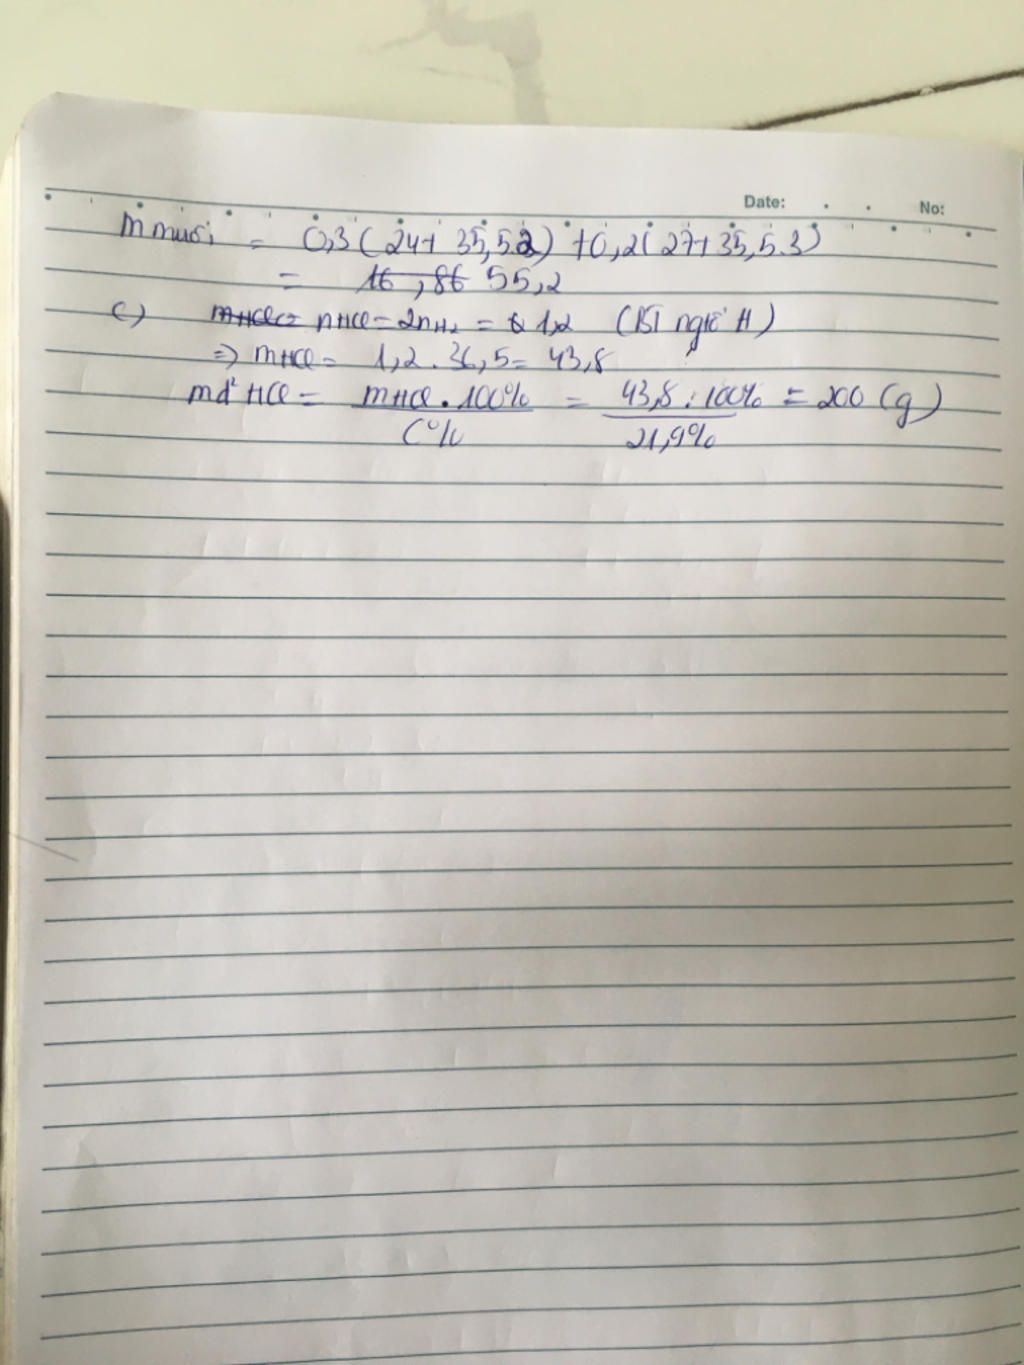 Date: No:
m muối = 0,3(24+ 35,5.2) +0,2(27+35,5.3)
= 16,86 55,2
c) mHCl= nHCl=2nH₂ = 1,2 (BT ngtố H)
=> mHCl= 1,2.36,5= 43,8
md² HCl = mHCl.100% / C% = 43,8.100% / 21,9% = 200 (g)